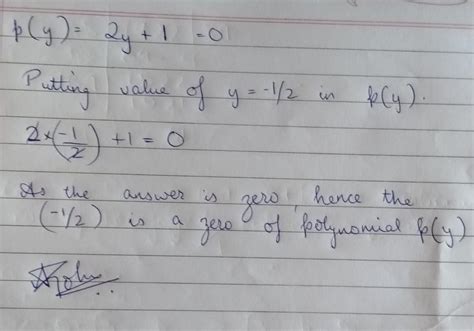 p(y) = 2y + 1 = 0
Putting value of y = -1/2 in p(y).
2×(-1/2) + 1 = 0
As the answer is zero, hence the
(-1/2) is a zero of polynomial p(y)